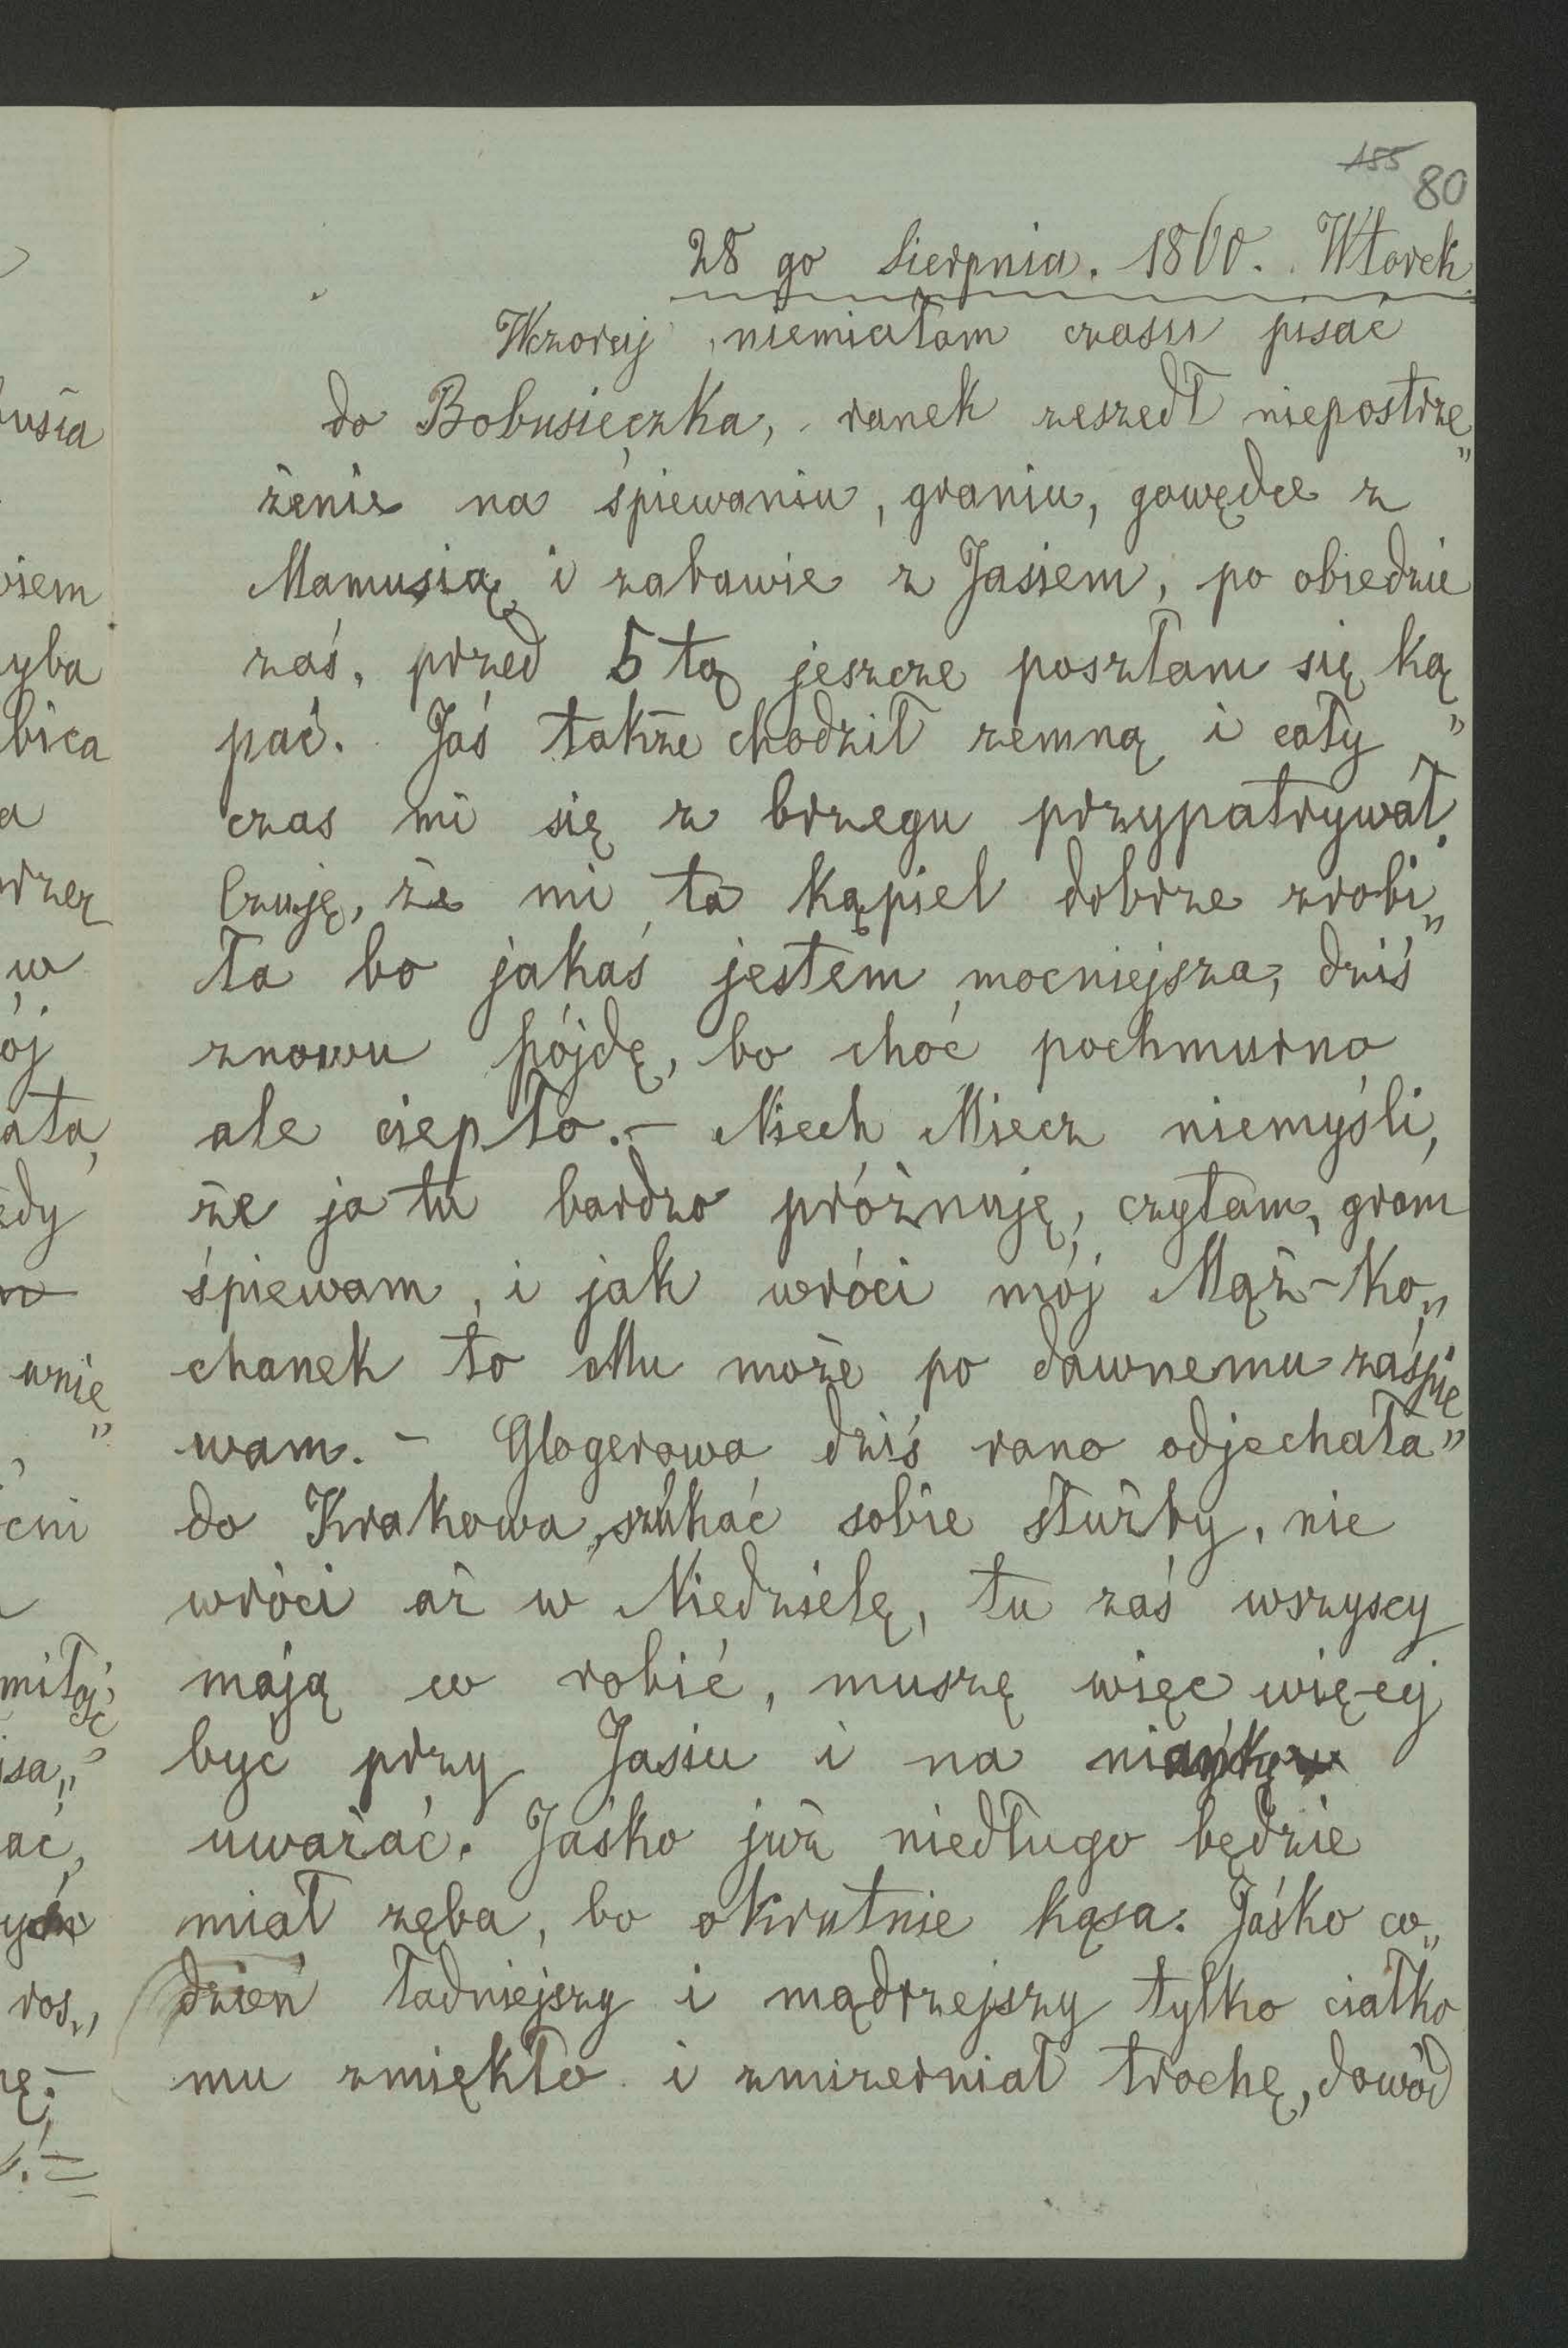 155 80
28 go Sierpnia. 1860. Wtorek
Wczoraj niemiałam czasu pisać
do Bobusieczka, ranek zeszedł niepostrze„
żenie na śpiewaniu, graniu, gawędce z
Mamusią i zabawie z Jasiem, po obiedzie
zaś, przed 5tą jeszcze poszłam się ką„
pać. Jaś także chodził zemną i cały
czas mi się z brzegu przypatrywał.
Czuję, że mi ta kąpiel dobrze zrobi„
ła bo jakaś jestem mocniejsza, dziś
znowu pójdę, bo choć pochmurno
ale ciepło.– Niech Miecz niemyśli,
że ja tu bardzo próżnuję, czytam, gram
śpiewam, i jak wróci mój Mąż-Ko„
chanek to Mu może po dawnemu zaśpie„
wam. – Glogerowa dziś rano odjechała
do Krakowa, szukać sobie służby, nie
wróci aż w Niedzielę, tu zaś wszyscy
mają co robić, muszę więc więcej
być przy Jasiu i na niańkę
uważać. Jaśko już niedługo będzie
miał zęba, bo okrutnie kąsa. Jaśko co„
dzień ładniejszy i mądrzejszy tylko ciałko
mu zmiękło i zmizerniał trochę, dowód
usia
wiem
yba
bica
a
w
ój
ała,
edy
wnie„
cni
miłość
isa„
ać,
ros„